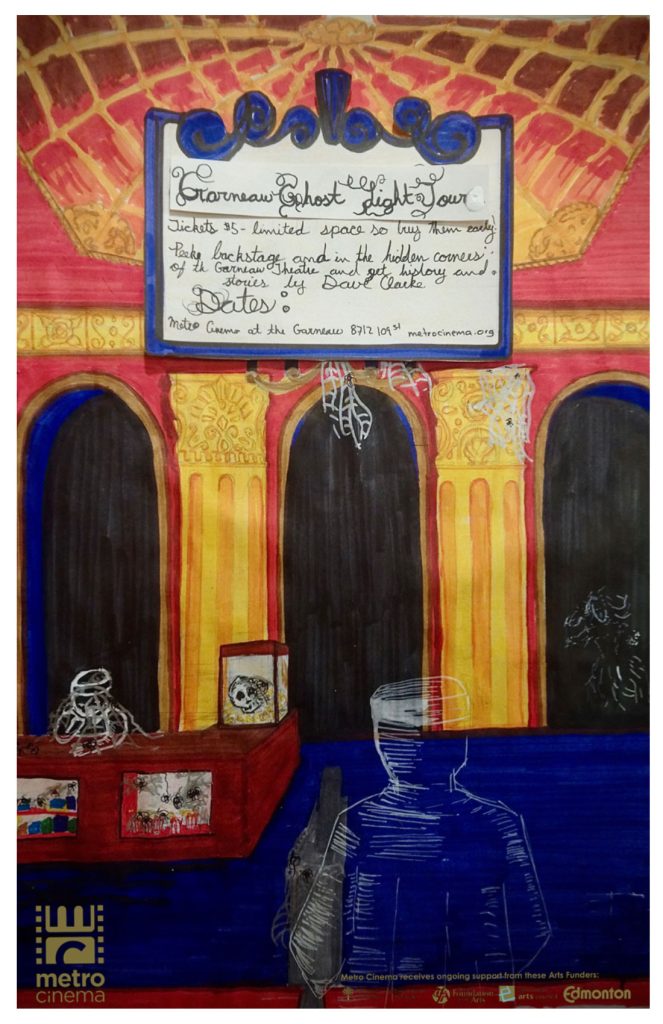 Garneau Ghost Light Tour
Tickets $5- limited space so buy them early!
Peeke backstage and in the hidden corners
of th Garneau Theatre and get history and
stories by Dave Clarke
Dates:
Metro Cinema at the Garneau 8712 109st metrocinema.org
metro
cinema
Metro Cinema receives ongoing support from these Arts Funders:
Foundation
Arts
arts
Edmonton